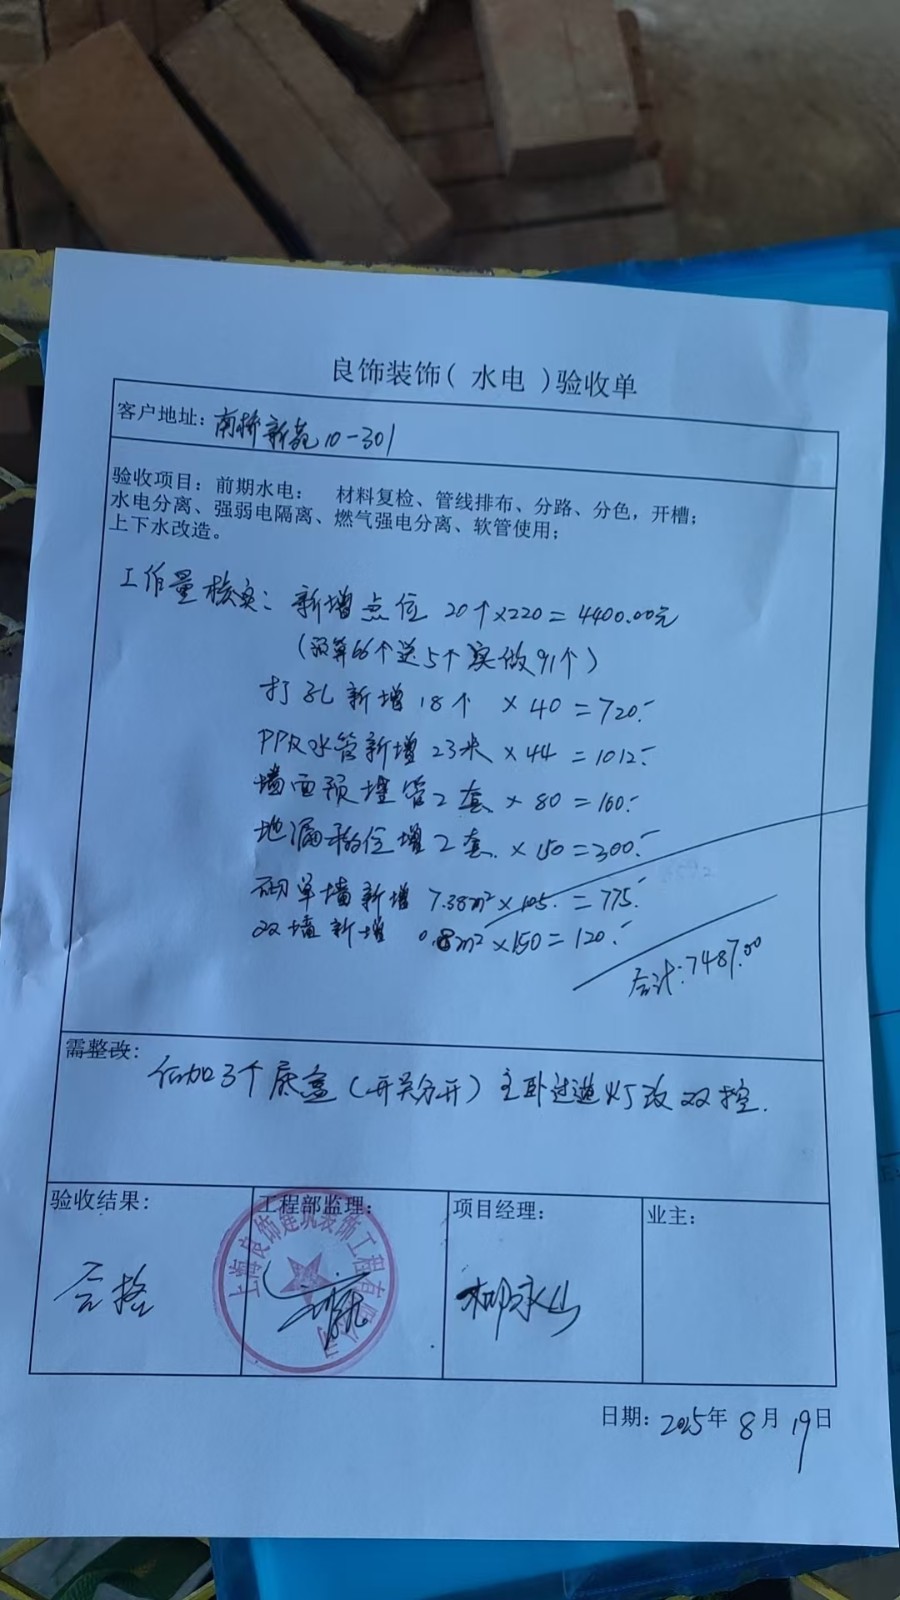 良饰装饰( 水电 )验收单
客户地址：南桥新苑10-301
验收项目：前期水电： 材料复检、管线排布、分路、分色，开槽；
水电分离、强弱电隔离、燃气强电分离、软管使用；
上下水改造。
工作量核实：新增点位 20个×220=4400.00元
(预算66个送5个实做91个)
打孔新增18个 ×40=720.-
PPR水管新增23米×44=1012.-
墙面预埋管2套×80=160.-
地漏移位增2套×150=300.-
砌单墙新增 7.38m²×105.=775.-
双墙新增 0.8m²×150=120.-
合计:7487.00
需整改：
加3个底盒(开关分开)主卧过道灯改双控.
验收结果：
合格
工程部监理：
上海良饰建筑装饰工程有限公司
项目经理：
柳永山
业主：
日期：2025年8月19日